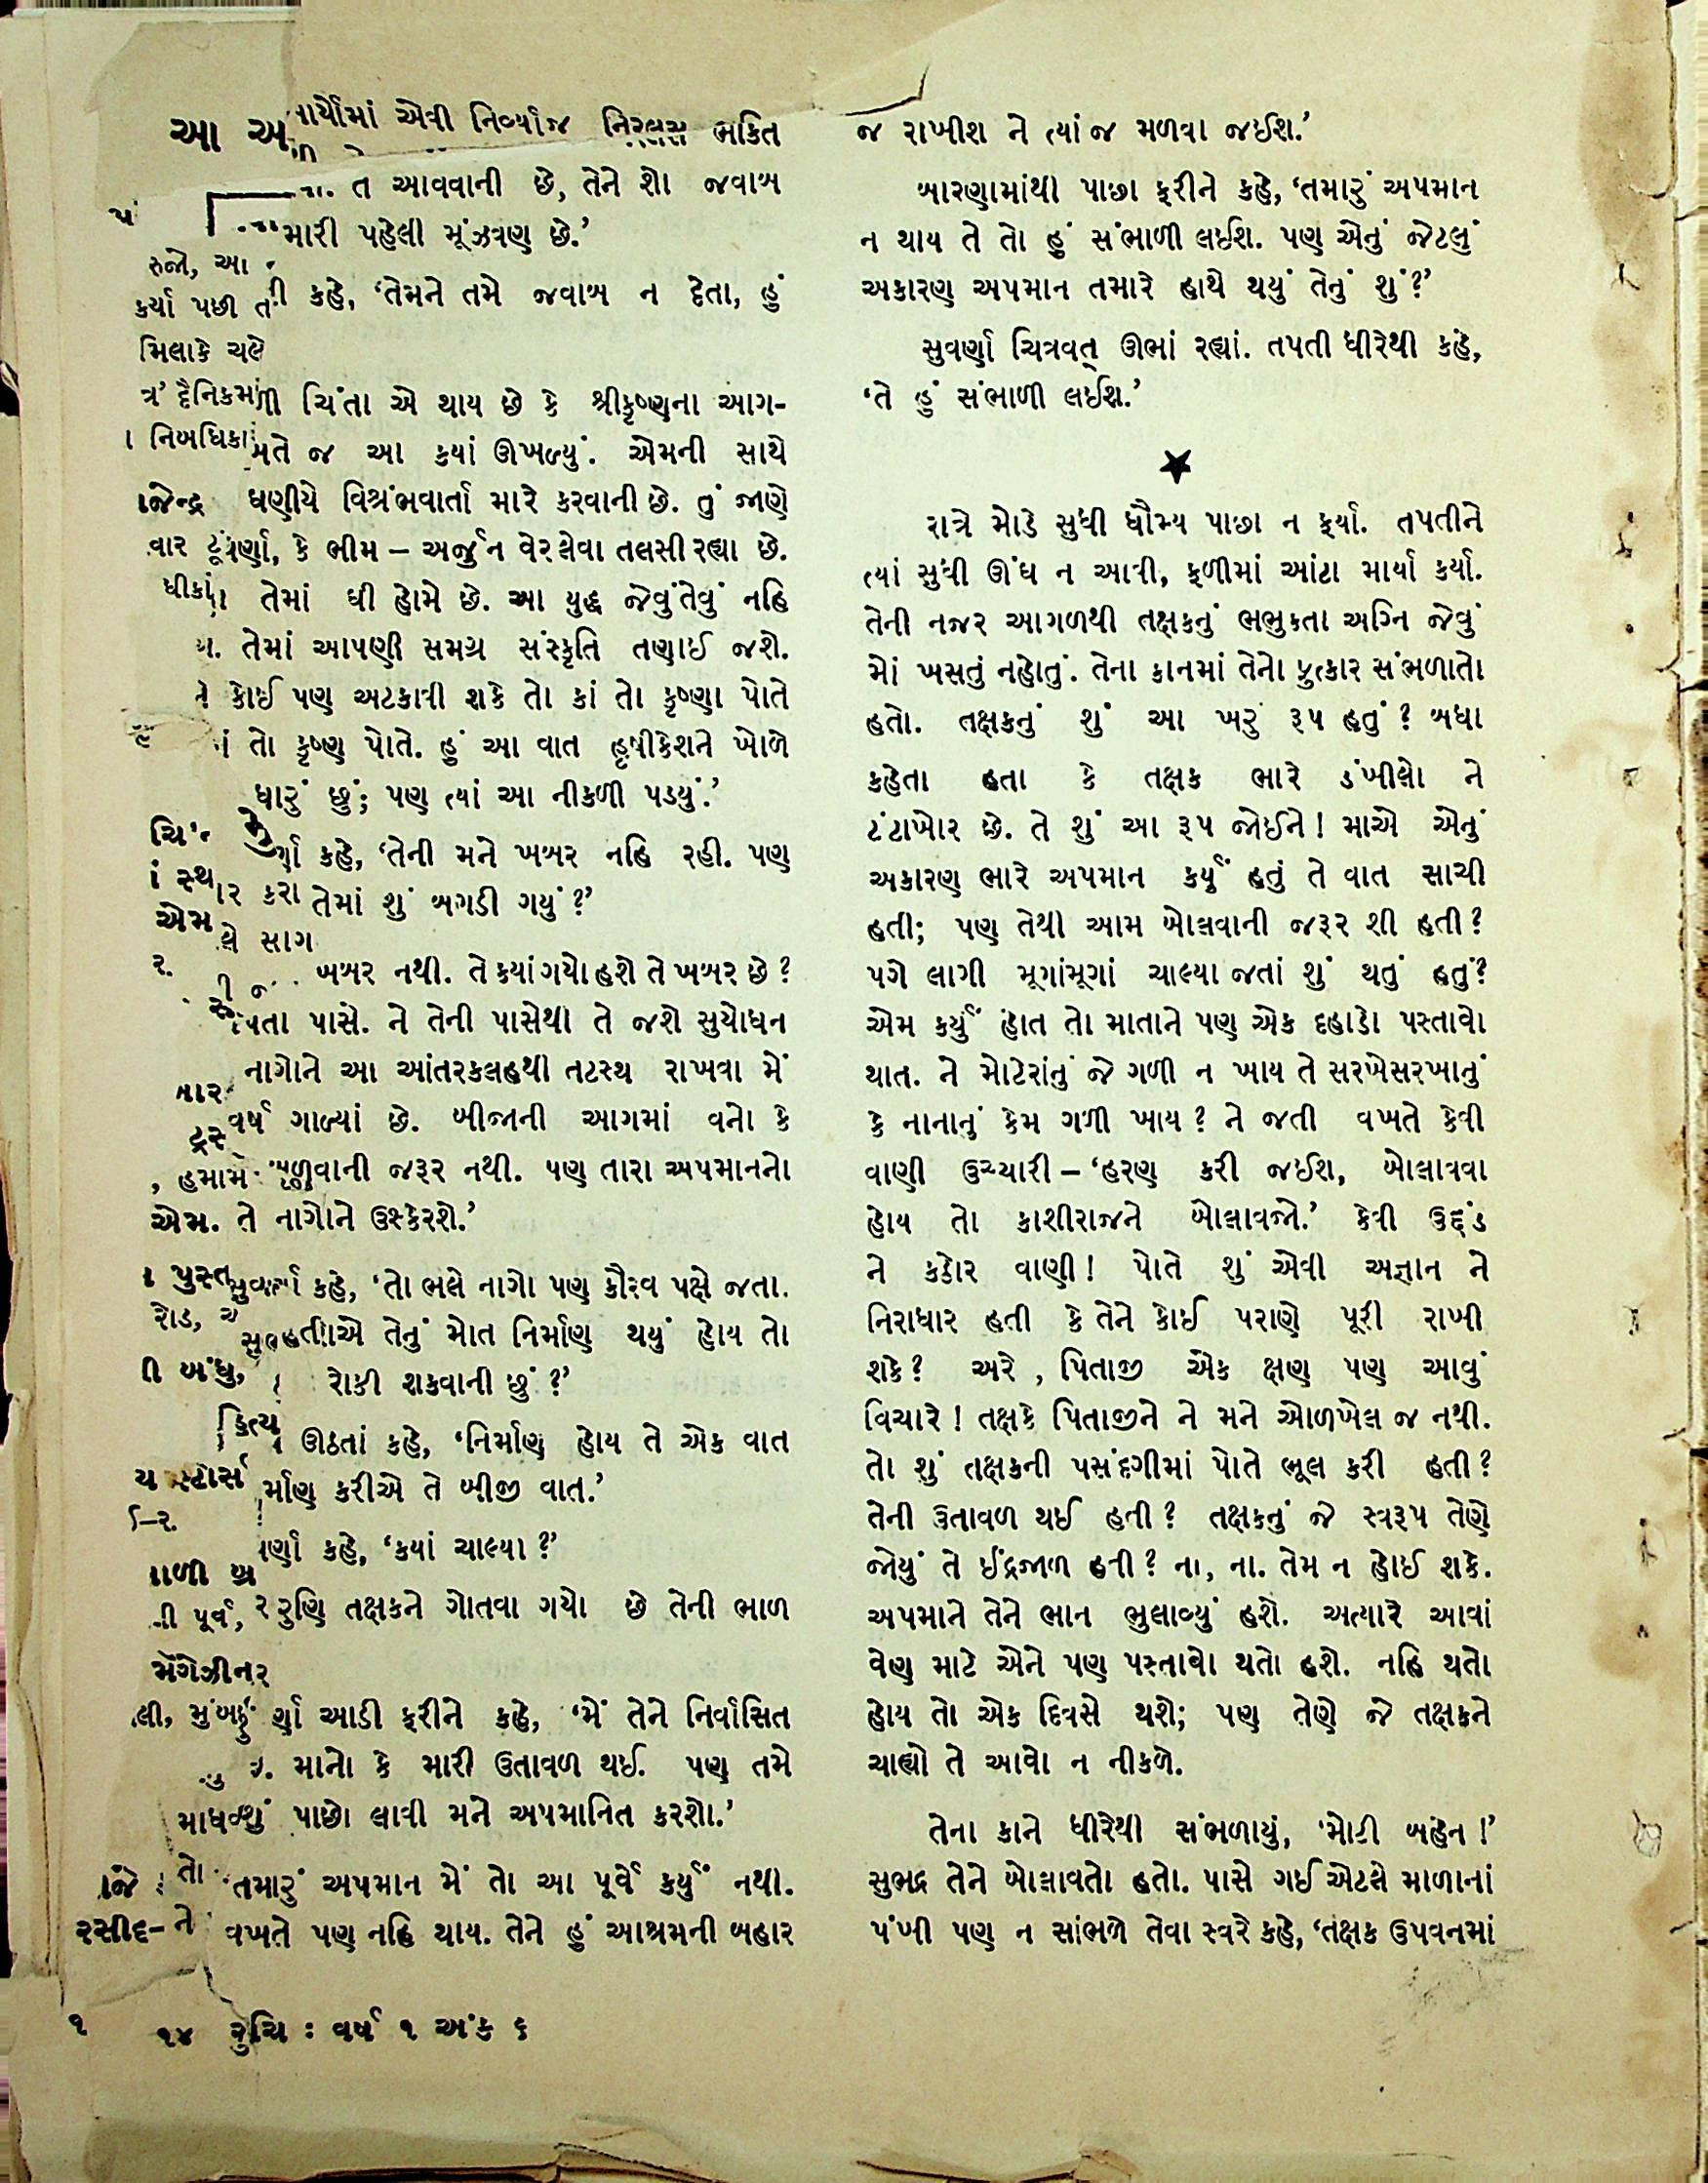 આ અ
ાર્યોમાં એવી નિર્વ્યાજ નિરલસ ભક્તિ
ત આવવાની છે, તેને શો જવાબ
મારી પહેલી મૂંઝવણ છે.’
કહે, ‘તેમને તમે જવાબ ન દેતા, હું
ચિંતા એ થાય છે કે શ્રીકૃષ્ણના આગ-
મતે જ આ કયાં ઊખળ્યું. એમની સાથે
ઘણીયે વિશ્રંભવાર્તા મારે કરવાની છે. તું જાણે
કે ભીમ – અર્જુન વેર લેવા તલસી રહ્યા છે.
તેમાં ઘી હોમે છે. આ યુદ્ધ જેવુંતેવું નહિ
તેમાં આપણી સમગ્ર સંસ્કૃતિ તણાઈ જશે.
કોઈ પણ અટકાવી શકે તો કાં તો કૃષ્ણા પોતે
તો કૃષ્ણ પોતે. હું આ વાત હૃષીકેશને ખોળે
ધારું છું; પણ ત્યાં આ નીકળી પડયું.’
કહે, ‘તેની મને ખબર નહિ રહી. પણ
તેમાં શું બગડી ગયું ?’
ખબર નથી. તે કયાં ગયો હશે તે ખબર છે ?
પાસે. ને તેની પાસેથી તે જશે સુયોધન
નાગોને આ આંતરકલહથી તટસ્થ રાખવા મેં
વર્ષ ગાળ્યાં છે. બીજાની આગમાં વનો કે
જરૂર નથી. પણ તારા અપમાનનો
તે નાગોને ઉશ્કેરશે.’
કહે, ‘તો ભલે નાગો પણ કૌરવ પક્ષે જતા.
તેનું મોત નિર્માણ થયું હોય તો
રોકી શકવાની છું ?’
ઊઠતાં કહે, ‘નિર્માણ હોય તે એક વાત
ર્માણ કરીએ તે બીજી વાત.’
ર્ણા કહે, ‘કયાં ચાલ્યા ?’
રુણિ તક્ષકને ગોતવા ગયો છે તેની ભાળ
ર્ણા આડી ફરીને કહે, ‘મેં તેને નિર્વાસિત
માનો કે મારી ઉતાવળ થઈ. પણ તમે
શું પાછો લાવી મને અપમાનિત કરશો.’
‘તમારું અપમાન મેં તો આ પૂર્વે કર્યું નથી.
વખતે પણ નહિ થાય. તેને હું આશ્રમની બહાર
જ રાખીશ ને ત્યાં જ મળવા જઈશ.’
બારણામાંથી પાછા ફરીને કહે, ‘તમારું અપમાન
ન થાય તે તો હું સંભાળી લઈશ. પણ એનું જેટલું
અકારણ અપમાન તમારે હાથે થયું તેનું શું ?’
સુવર્ણા ચિત્રવત્ ઊભાં રહ્યાં. તપતી ધીરેથી કહે,
‘તે હું સંભાળી લઈશ.’
★
રાત્રે મોડે સુધી ધૌમ્ય પાછા ન ફર્યા. તપતીને
ત્યાં સુધી ઊંઘ ન આવી, ફળીમાં આંટા માર્યા કર્યા.
તેની નજર આગળથી તક્ષકનું ભભુકતા અગ્નિ જેવું
મોં ખસતું નહોતું. તેના કાનમાં તેનો ફુત્કાર સંભળાતો
હતો. તક્ષકનું શું આ ખરું રૂપ હતું ? બધા
કહેતા હતા કે તક્ષક ભારે ડંખીલો ને
ટંટાખોર છે. તે શું આ રૂપ જોઈને ! માએ એનું
અકારણ ભારે અપમાન કર્યું હતું તે વાત સાચી
હતી; પણ તેથી આમ બોલવાની જરૂર શી હતી ?
પગે લાગી મૂગાંમૂગાં ચાલ્યા જતાં શું થતું હતું ?
એમ કર્યું હોત તો માતાને પણ એક દહાડો પસ્તાવો
થાત. ને મોટેરાંનું જે ગળી ન ખાય તે સરખેસરખાનું
કે નાનાનું કેમ ગળી ખાય ? ને જતી વખતે કેવી
વાણી ઉચ્ચારી – ‘હરણ કરી જઈશ, બોલાવવા
હોય તો કાશીરાજને બોલાવજો.’ કેવી ઉદ્દંડ
ને કઠોર વાણી ! પોતે શું એવી અજ્ઞાન ને
નિરાધાર હતી કે તેને કોઈ પરાણે પૂરી રાખી
શકે ? અરે , પિતાજી એક ક્ષણ પણ આવું
વિચારે ! તક્ષકે પિતાજીને ને મને ઓળખેલ જ નથી.
તો શું તક્ષકની પસંદગીમાં પોતે ભૂલ કરી હતી ?
તેની ઉતાવળ થઈ હતી ? તક્ષકનું જે સ્વરૂપ તેણે
જોયું તે ઈંદ્રજાળ હતી ? ના, ના. તેમ ન હોઈ શકે.
અપમાને તેને ભાન ભુલાવ્યું હશે. અત્યારે આવાં
વેણ માટે એને પણ પસ્તાવો થતો હશે. નહિ થતો
હોય તો એક દિવસે થશે; પણ તેણે જે તક્ષકને
ચાહ્યો તે આવો ન નીકળે.
તેના કાને ધીરેથી સંભળાયું, ‘મોટી બહેન !’
સુભદ્ર તેને બોલાવતો હતો. પાસે ગઈ એટલે માળાનાં
પંખી પણ ન સાંભળે તેવા સ્વરે કહે, ‘તક્ષક ઉપવનમાં
૧૪ રુચિ : વર્ષ ૧ અંક ૬